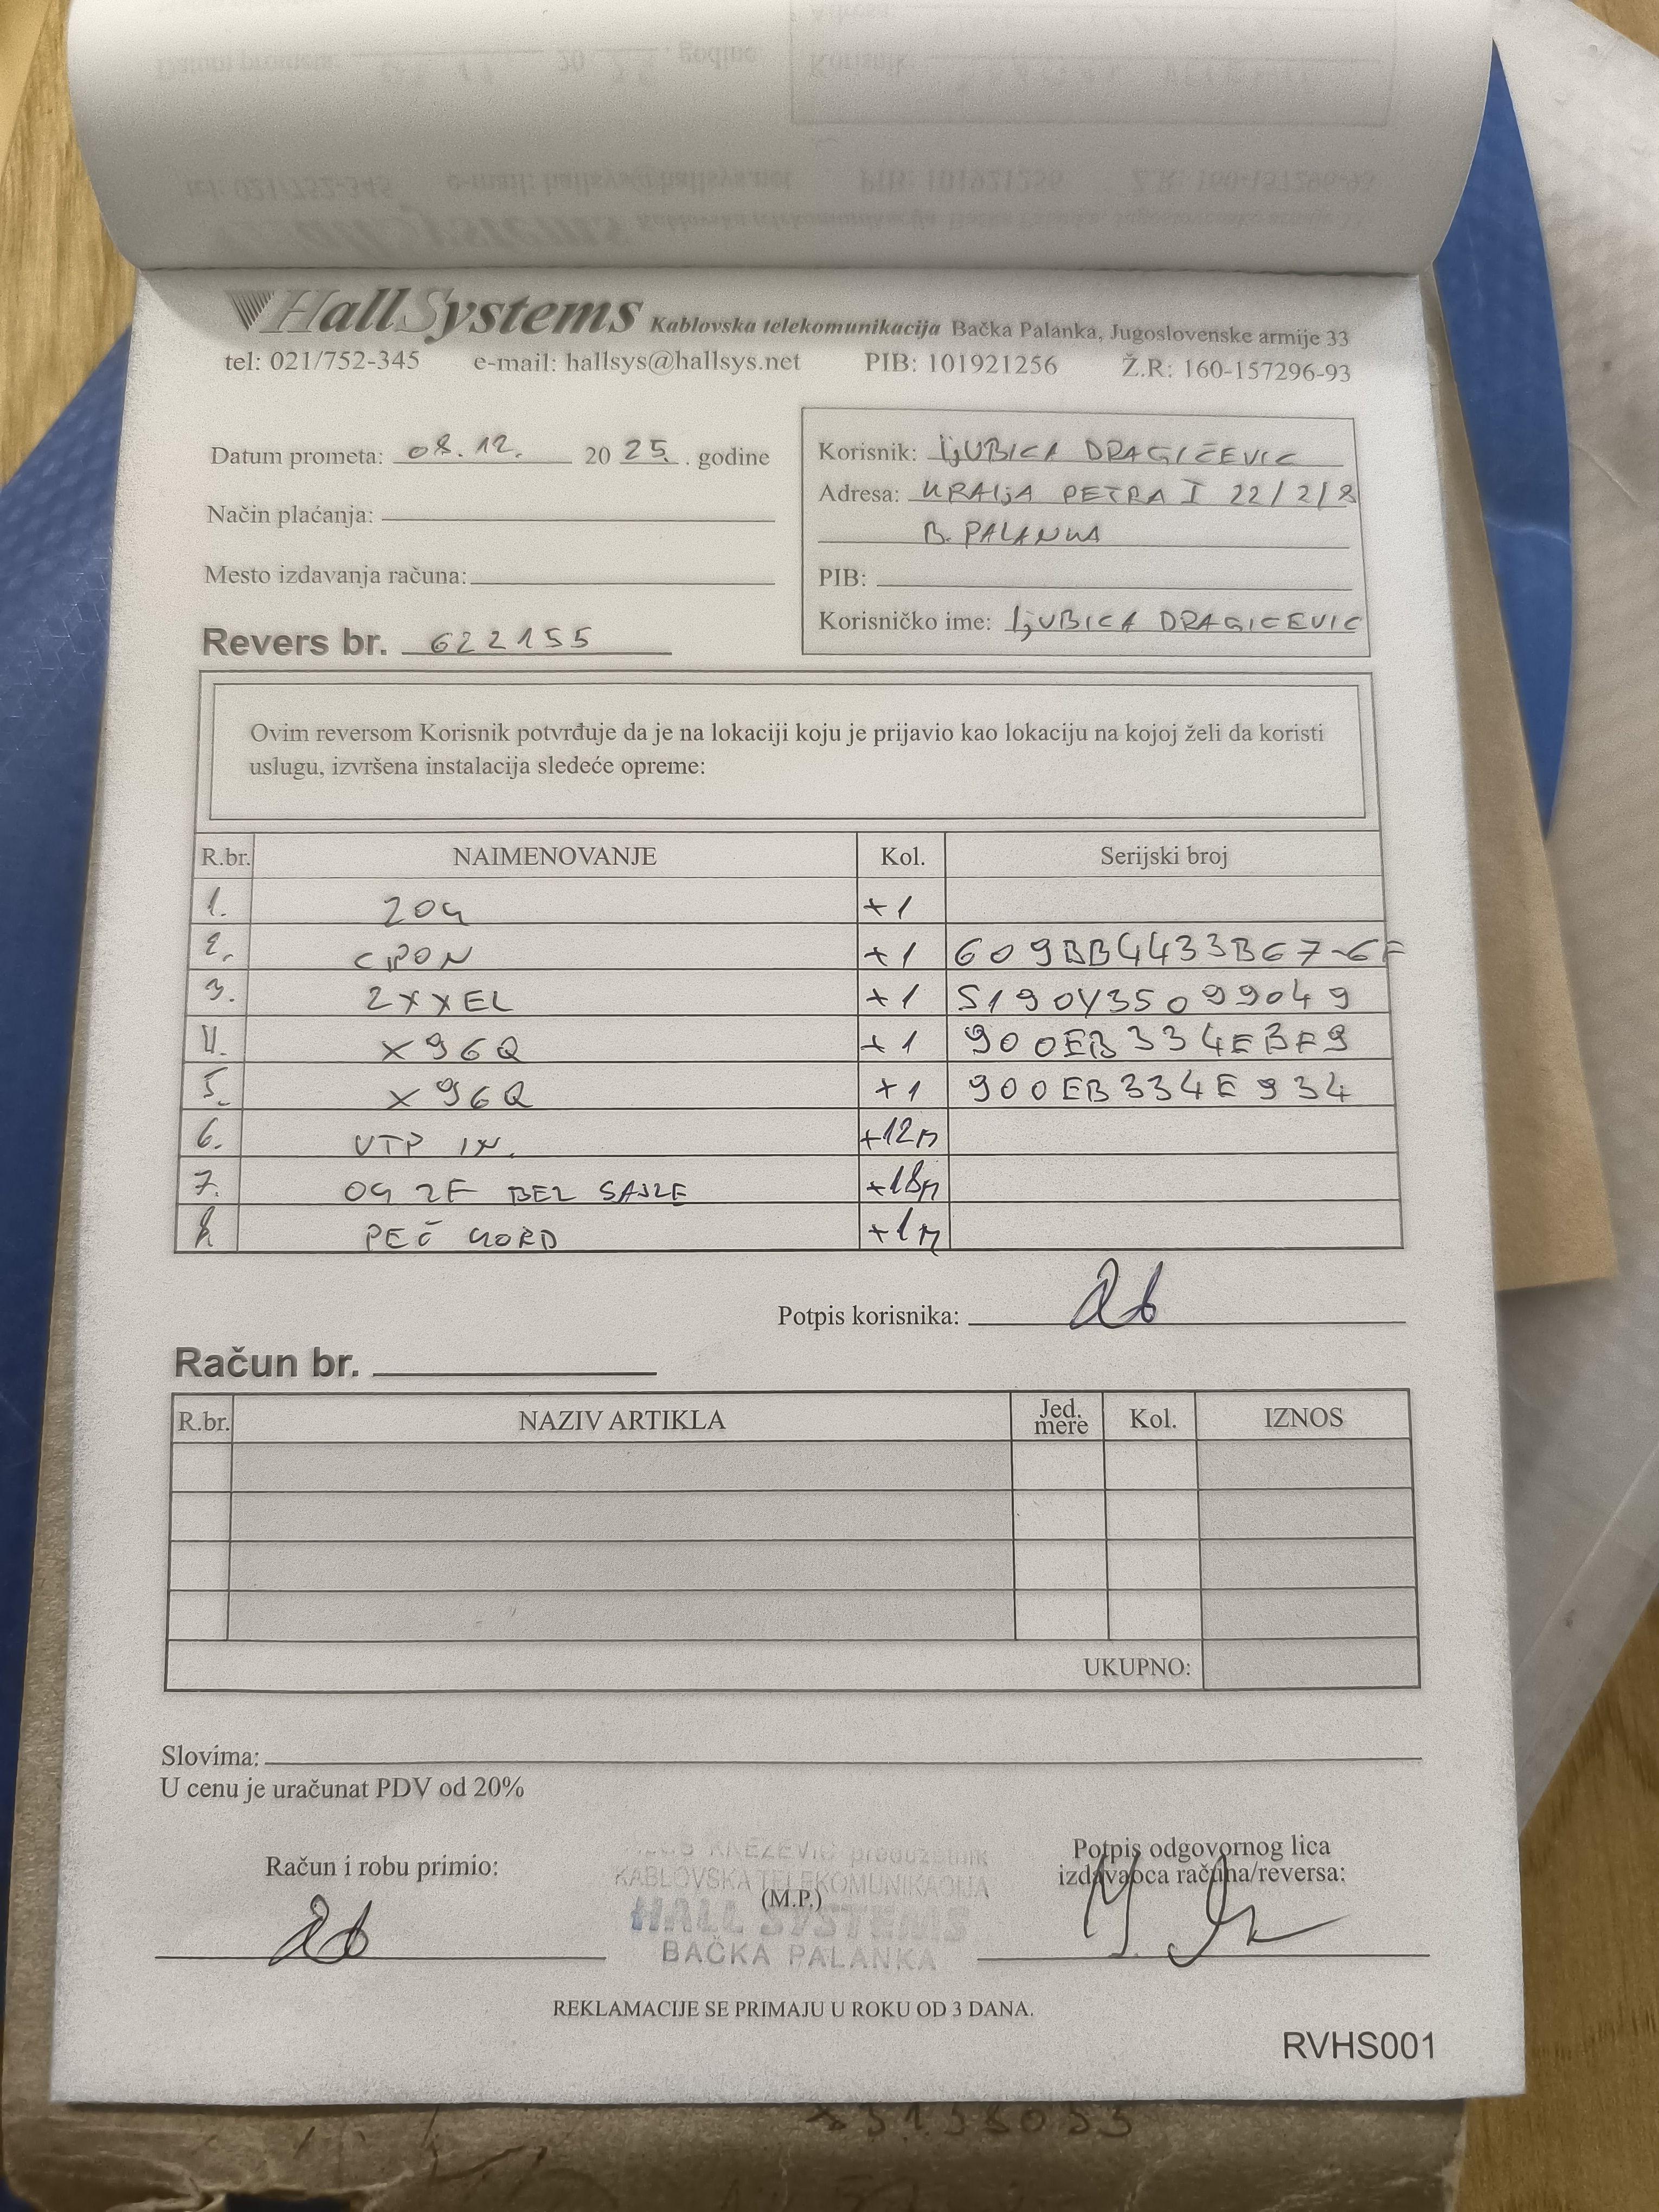 HallSystems Kablovska telekomunikacija Bačka Palanka, Jugoslovenske armije 33
tel: 021/752-345 e-mail: hallsys@hallsys.net PIB: 101921256 Ž.R: 160-157296-93
Datum prometa: 08.12. 20 25. . godine
Način plaćanja:
Mesto izdavanja računa:
Revers br. 622155
Korisnik: ljUBICA DRAGIČEVIC
Adresa: KRALjA PETRA I 22/2/8
B. PALANKA
PIB:
Korisničko ime: ljUBICA DRAGICEVIC
Ovim reversom Korisnik potvrđuje da je na lokaciji koju je prijavio kao lokaciju na kojoj želi da koristi
uslugu, izvršena instalacija sledeće opreme:
R.br. NAIMENOVANJE Kol. Serijski broj
1. ZOG +1
2. GPON +1 609BB4433B67
3. ZYXEL +1 S190Y35099049
4. X96Q +1 900EB334EBF9
5. X96Q +1 900EB334E934
6. UTP IN. +12m
7. OG 2F BEZ SAJLE +18m
8. PEČ KORD +1m
Potpis korisnika:
Račun br.
R.br. NAZIV ARTIKLA Jed. mere Kol. IZNOS
UKUPNO:
Slovima:
U cenu je uračunat PDV od 20%
Račun i robu primio:
KNEZEVIC preduzetnik
KABLOVSKA TELEKOMUNIKACIJA
(M.P.)
HALL SYSTEMS
BAČKA PALANKA
Potpis odgovornog lica
izdavaoca računa/reversa:
REKLAMACIJE SE PRIMAJU U ROKU OD 3 DANA.
RVHS001